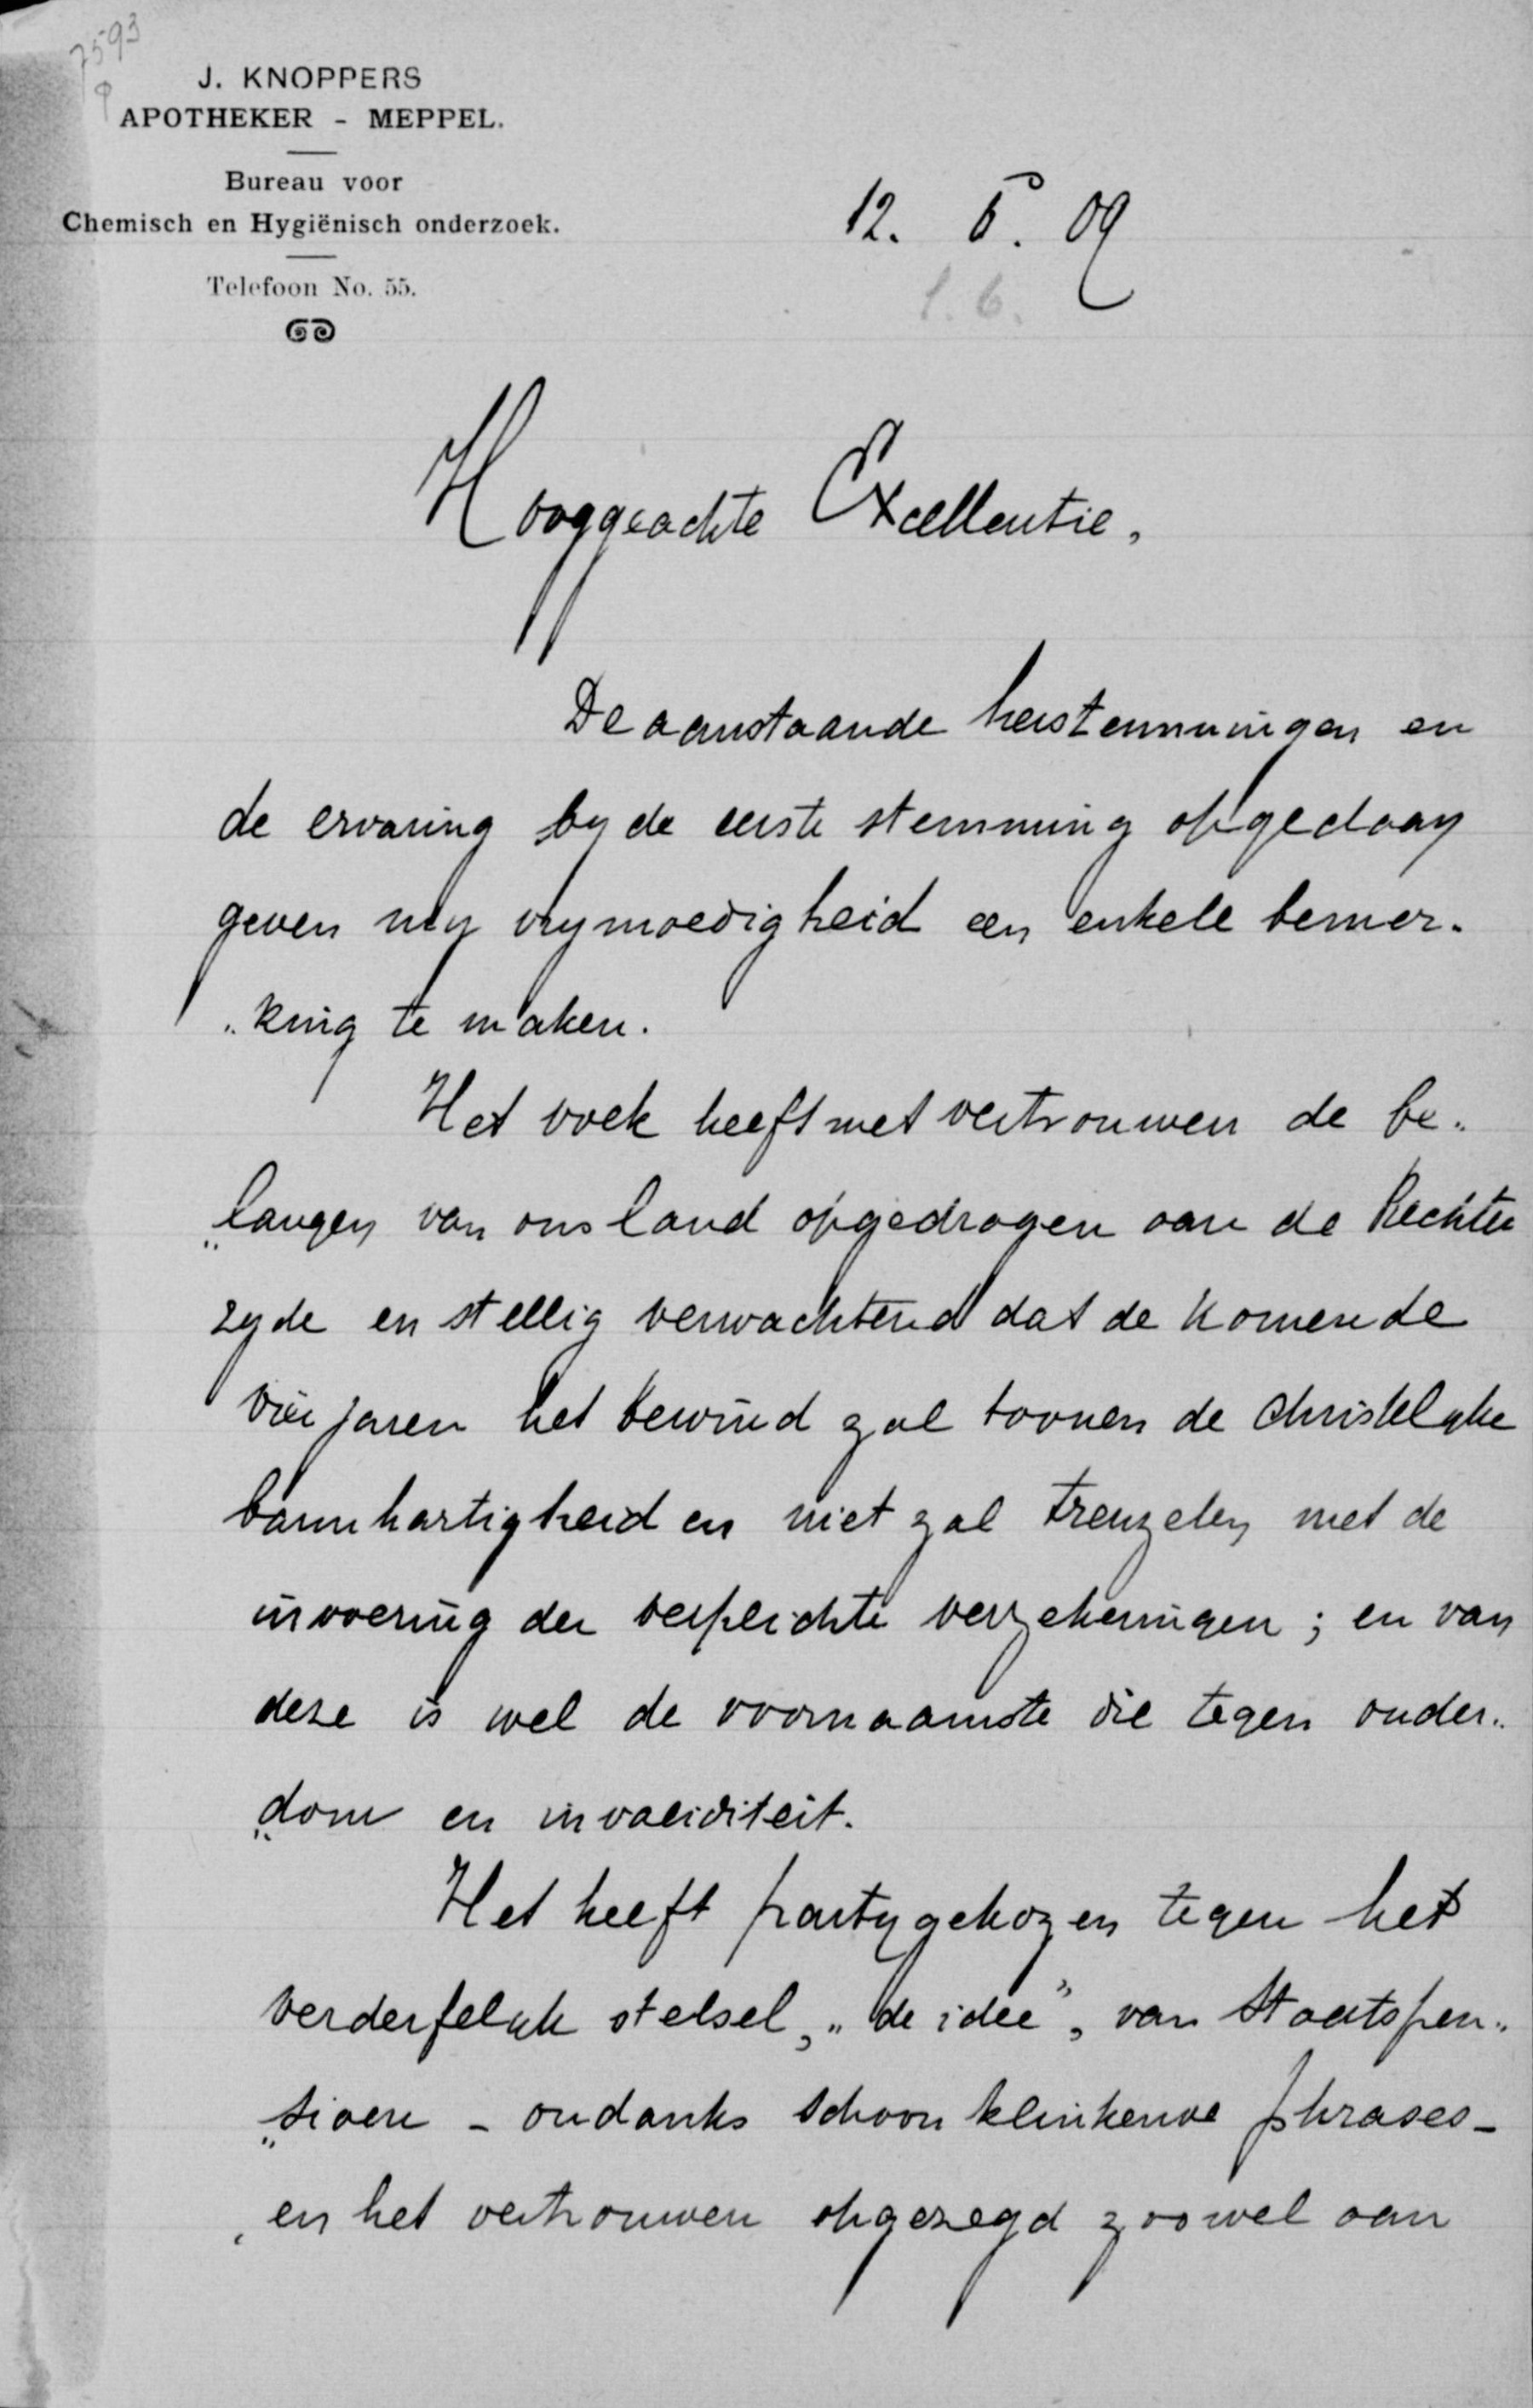 7593
J. KNOPPERS
APOTHEKER - MEPPEL.
Bureau voor
Chemisch en Hygiënisch onderzoek.
Telefoon No. 55.
12. 6. 09
Hooggeachte Excellentie,
De aanstaande herstemmingen en
de ervaring by de eerste stemming opgedaan
geven my vrymoedigheid een enkele bemer-
„king te maken.
Het volk heeft met vertrouwen de be-
„langen van ons land opgedragen aan de Rechter
zyde en stellig verwachtend dat de komende
vier jaren het bewind zal toonen de Christelyke
barmhartigheid en niet zal treuzelen met de
invoering der verplichte verzekeringen; en van
deze is wel de voornaamste die tegen ouder-
„dom en invaliditeit.
Het heeft party gekozen tegen het
verderfelyk stelsel, „de idee", van Staatspen-
„sioen - ondanks schoon klinkende phrases -
en het vertrouwen opgezegd zoowel aan